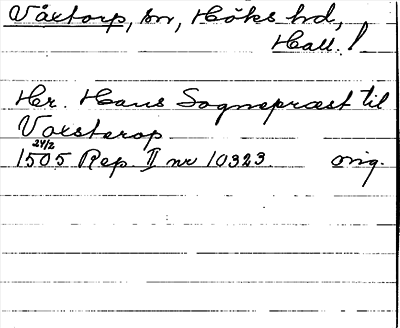 Våxtorp, sn, Höks hd,
Hall. !
Hr. Hans Sognepræst til
Voxsterop
24/2
1505 Rep. II nr 10323. orig.